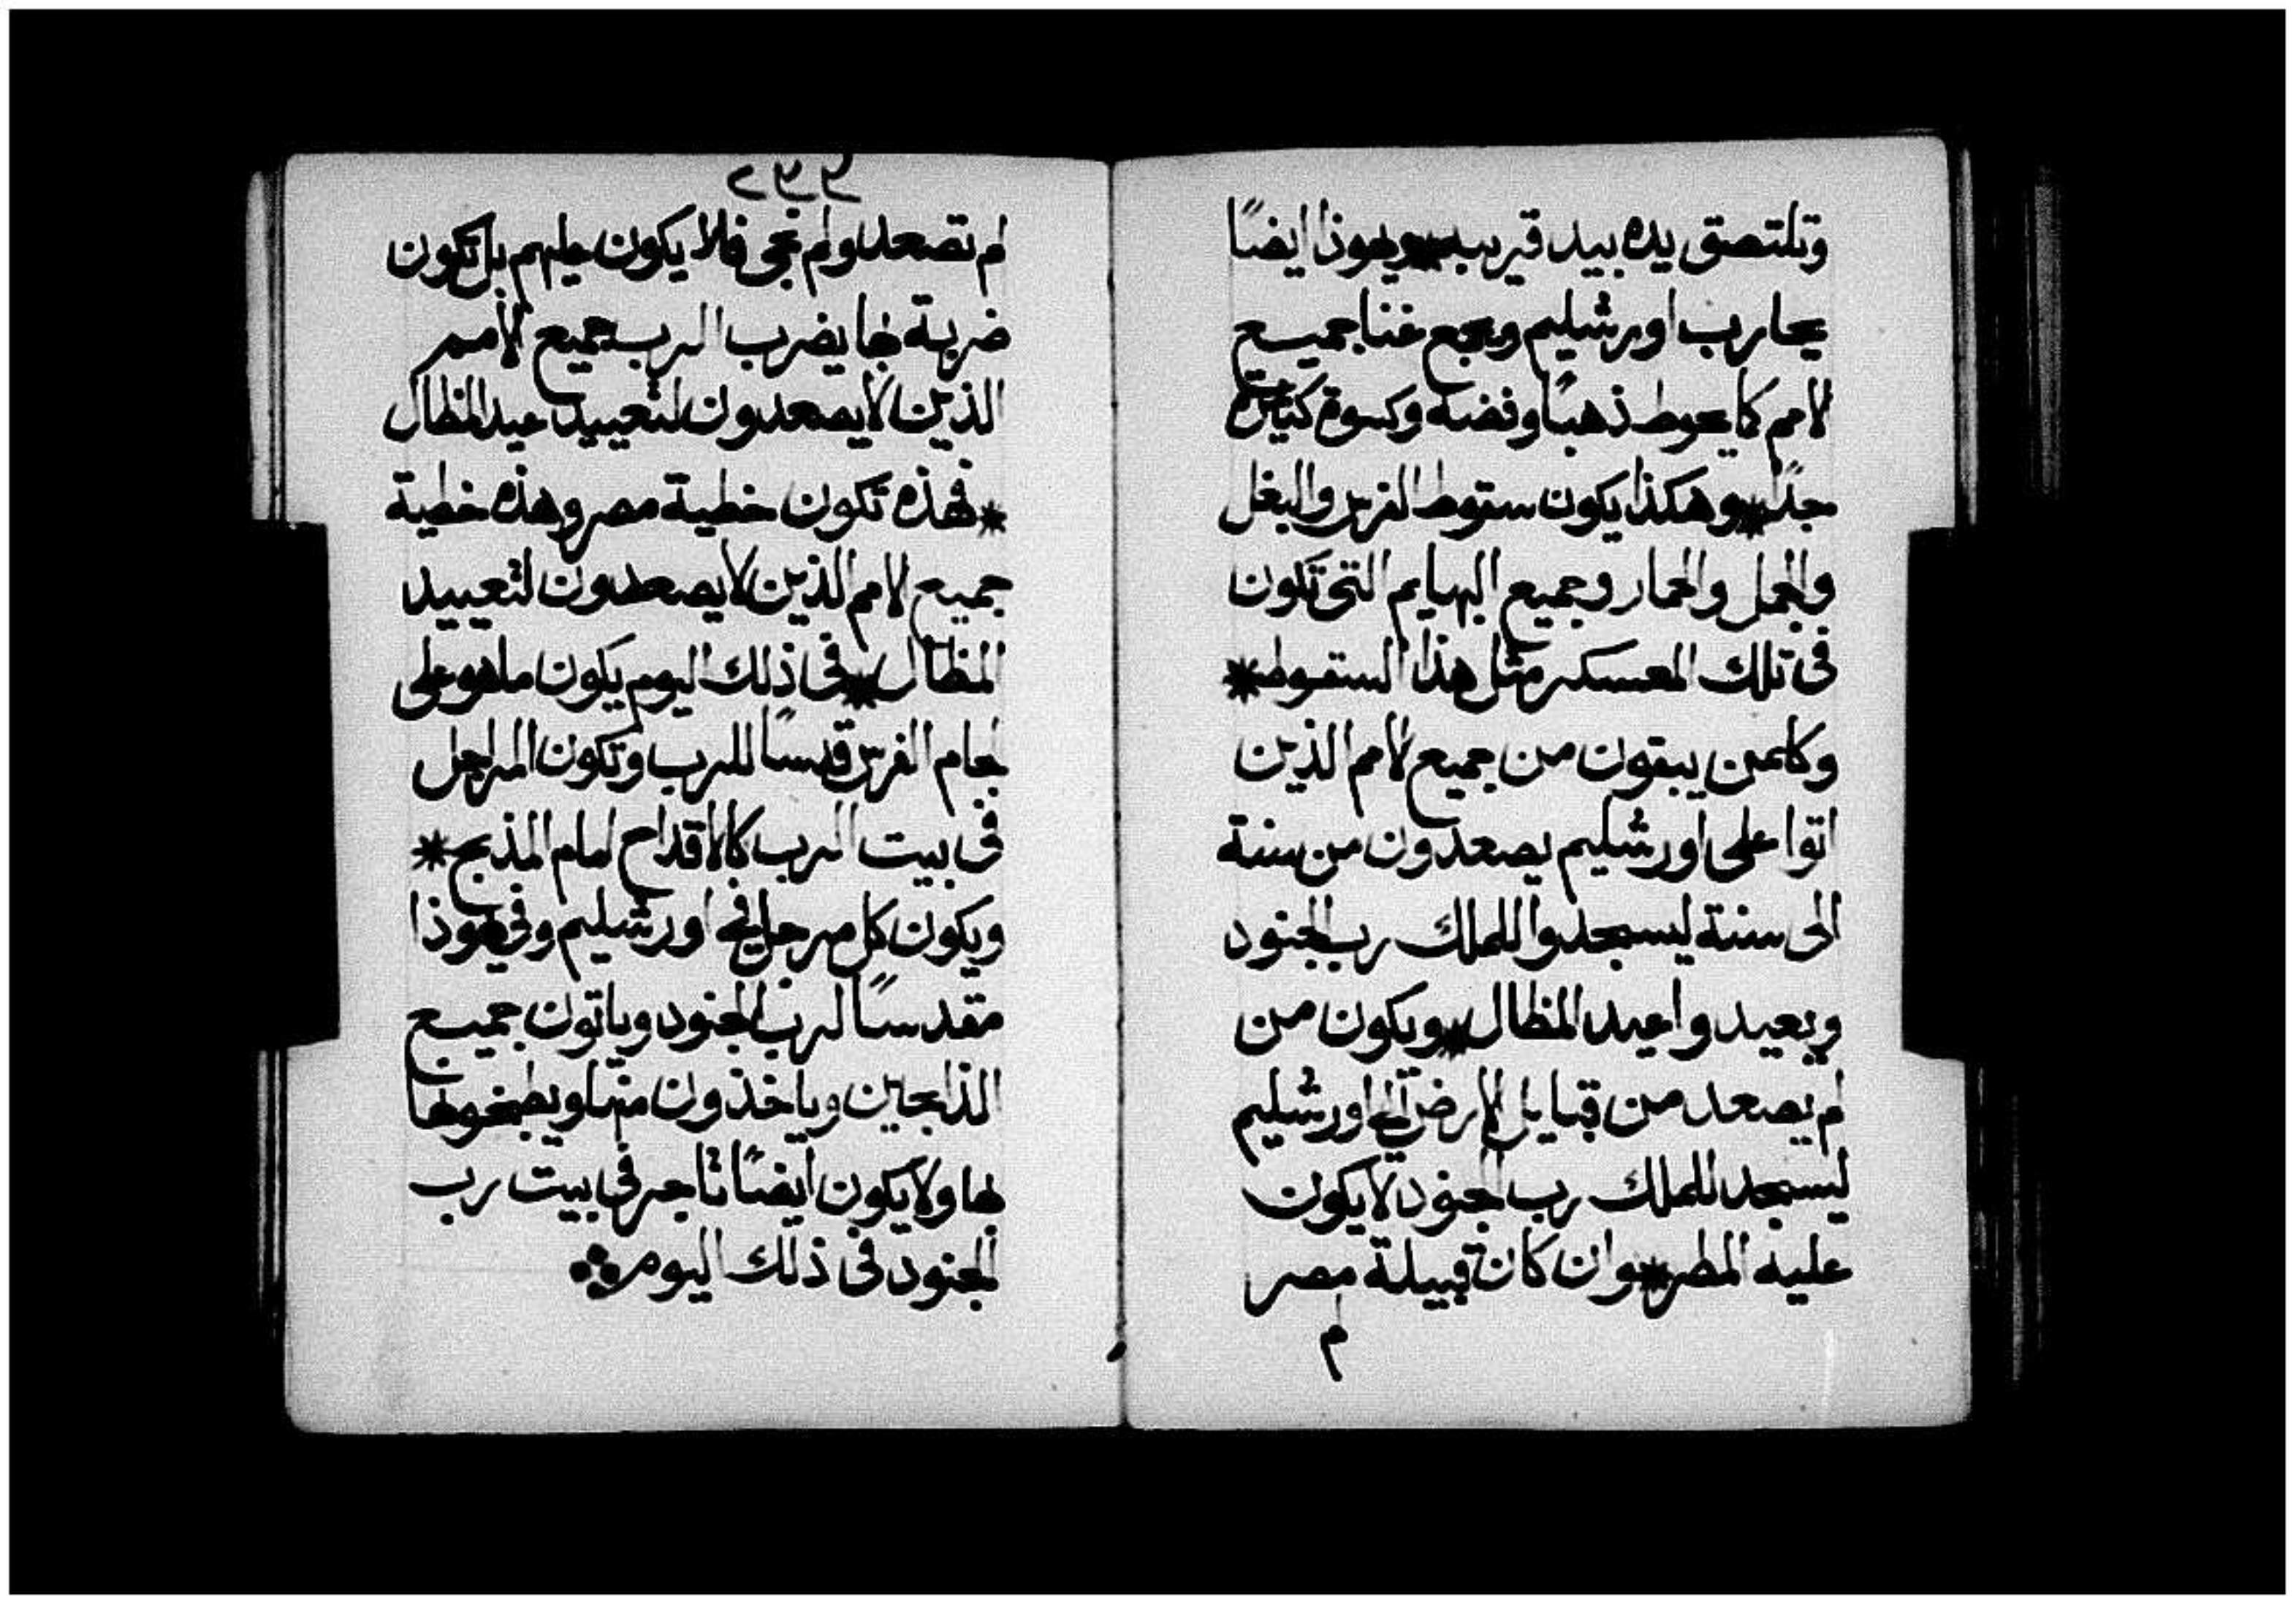 وتلتصق يده بيد قريبه * ويهوذا ايضًا
يحارب اورشليم ويجمع غنا جميع
الامم كما يحوط ذهبًا وفضه وكسوة كثيرة
جدًا * وهكذا يكون سقوط الفرس والبغل
والجمل والحمار وجميع البهايم التي تكون
في تلك المعسكر مثل هذا السقوط *
وكلمن يبقون من جميع الامم الذين
اتوا على اورشليم يصعدون من سنة
الى سنة ليسجدوا للملك رب الجنود
ويعيدوا عيد المظال * ويكون من
لم يصعد من قبايل الارض الى اورشليم
ليسجد للملك رب الجنود لا يكون
عليه المطر * وان كان قبيلة مصر
لم
لم تصعد ولم تجي فلا يكون عليهم بل تكون
ضربة بها يضرب الرب جميع الأمم
الذين لا يصعدون لتعييد عيد المظال
* فهذه تكون خطية مصر وهذه خطية
جميع الامم الذين لا يصعدون لتعييد
المظال * في ذلك اليوم يكون ما هو على
لجام الفرس قدسًا للرب وتكون المراجل
في بيت الرب كالاقداح امام المذبح *
ويكون كل مرجل في اورشليم وفي يهوذا
مقدسًا لرب الجنود وياتون جميع
الذابحين وياخذون منها ويطبخونها
بها ولا يكون ايضًا تاجر في بيت رب
الجنود في ذلك اليوم